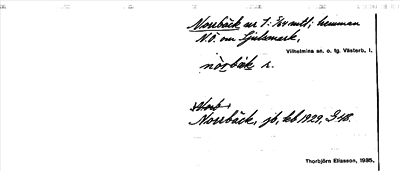 Norrbäck nr 1: 7/64 mtl; hemman
N.O. om Sjulsmark.
Vilhelmina sn. o. tg. Västerb. l.
nòrbäk 2.
Norrbäck, jb, kb 1929, GK.
Thorbjörn Eliasson, 1935.